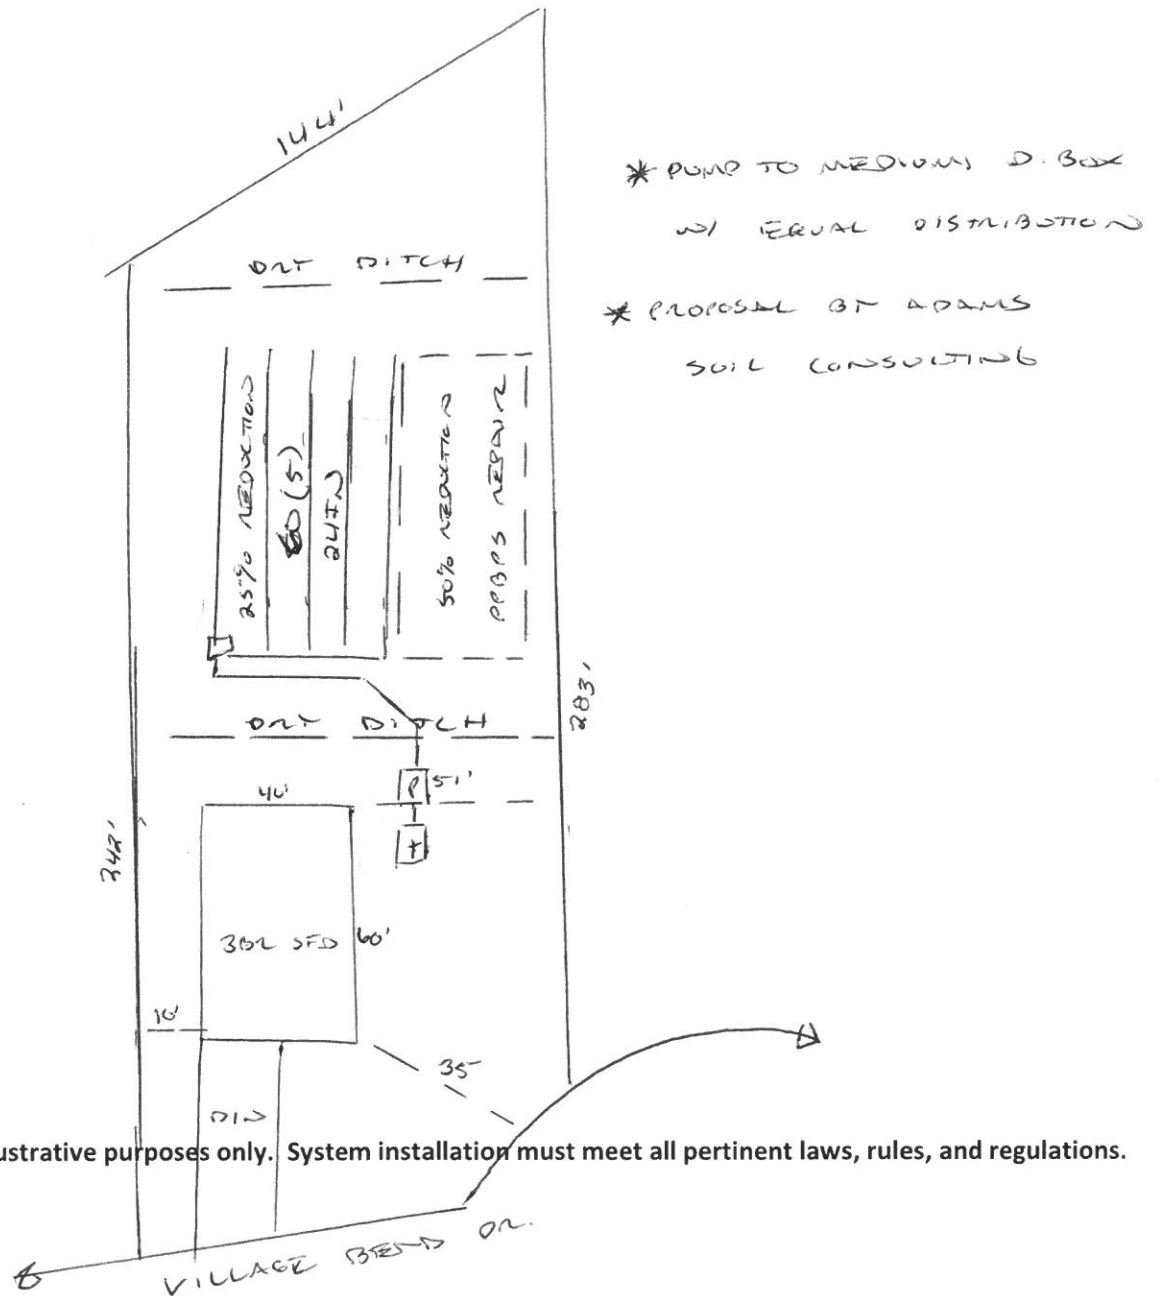 144'
* PUMP TO MEDIUM D. BOX
W/ EQUAL DISTRIBUTION
DRY DITCH
* PROPOSAL BY ADAMS
SOIL CONSULTING
25% REDUCTION
60(5)
24IN
50% REDUCTION
PPBPS REPAIR
283'
DRY DITCH
P 51'
40'
T
342'
3BR SFD 60'
10'
35
D/W
ustrative purposes only. System installation must meet all pertinent laws, rules, and regulations.
VILLAGE BEND DR.